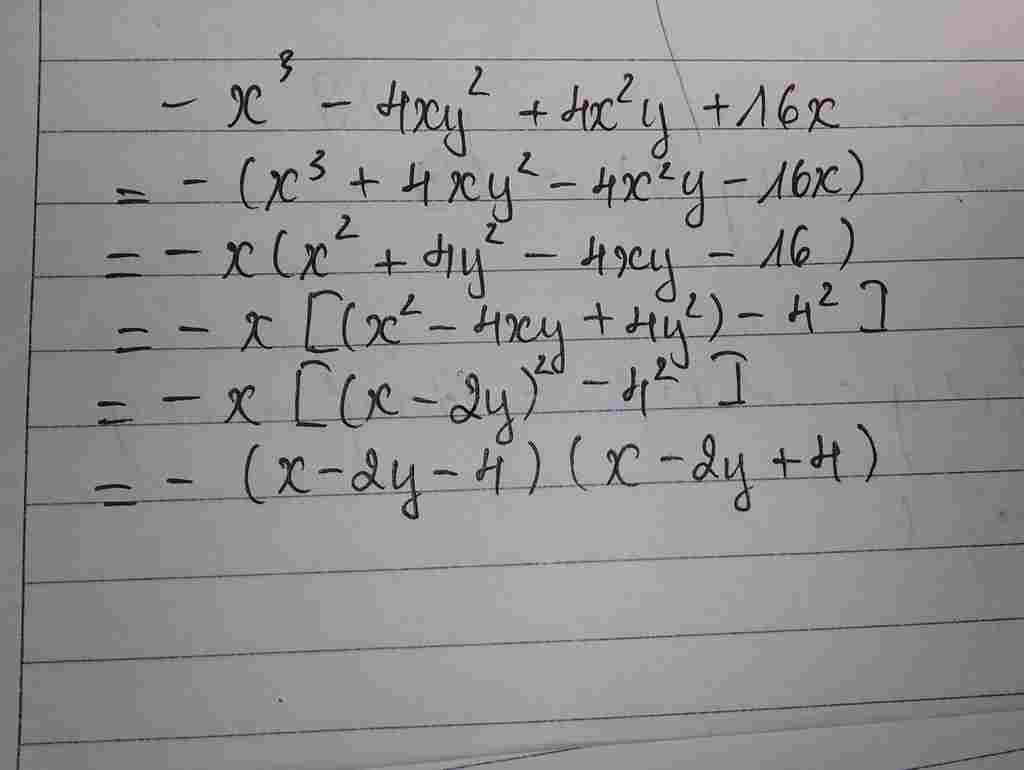 - x³ - 4xy² + 4x²y + 16x
= - (x³ + 4xy² - 4x²y - 16x)
= - x (x² + 4y² - 4xy - 16)
= - x [(x² - 4xy + 4y²) - 4²]
= - x [(x - 2y)² - 4²]
= - (x - 2y - 4) (x - 2y + 4)